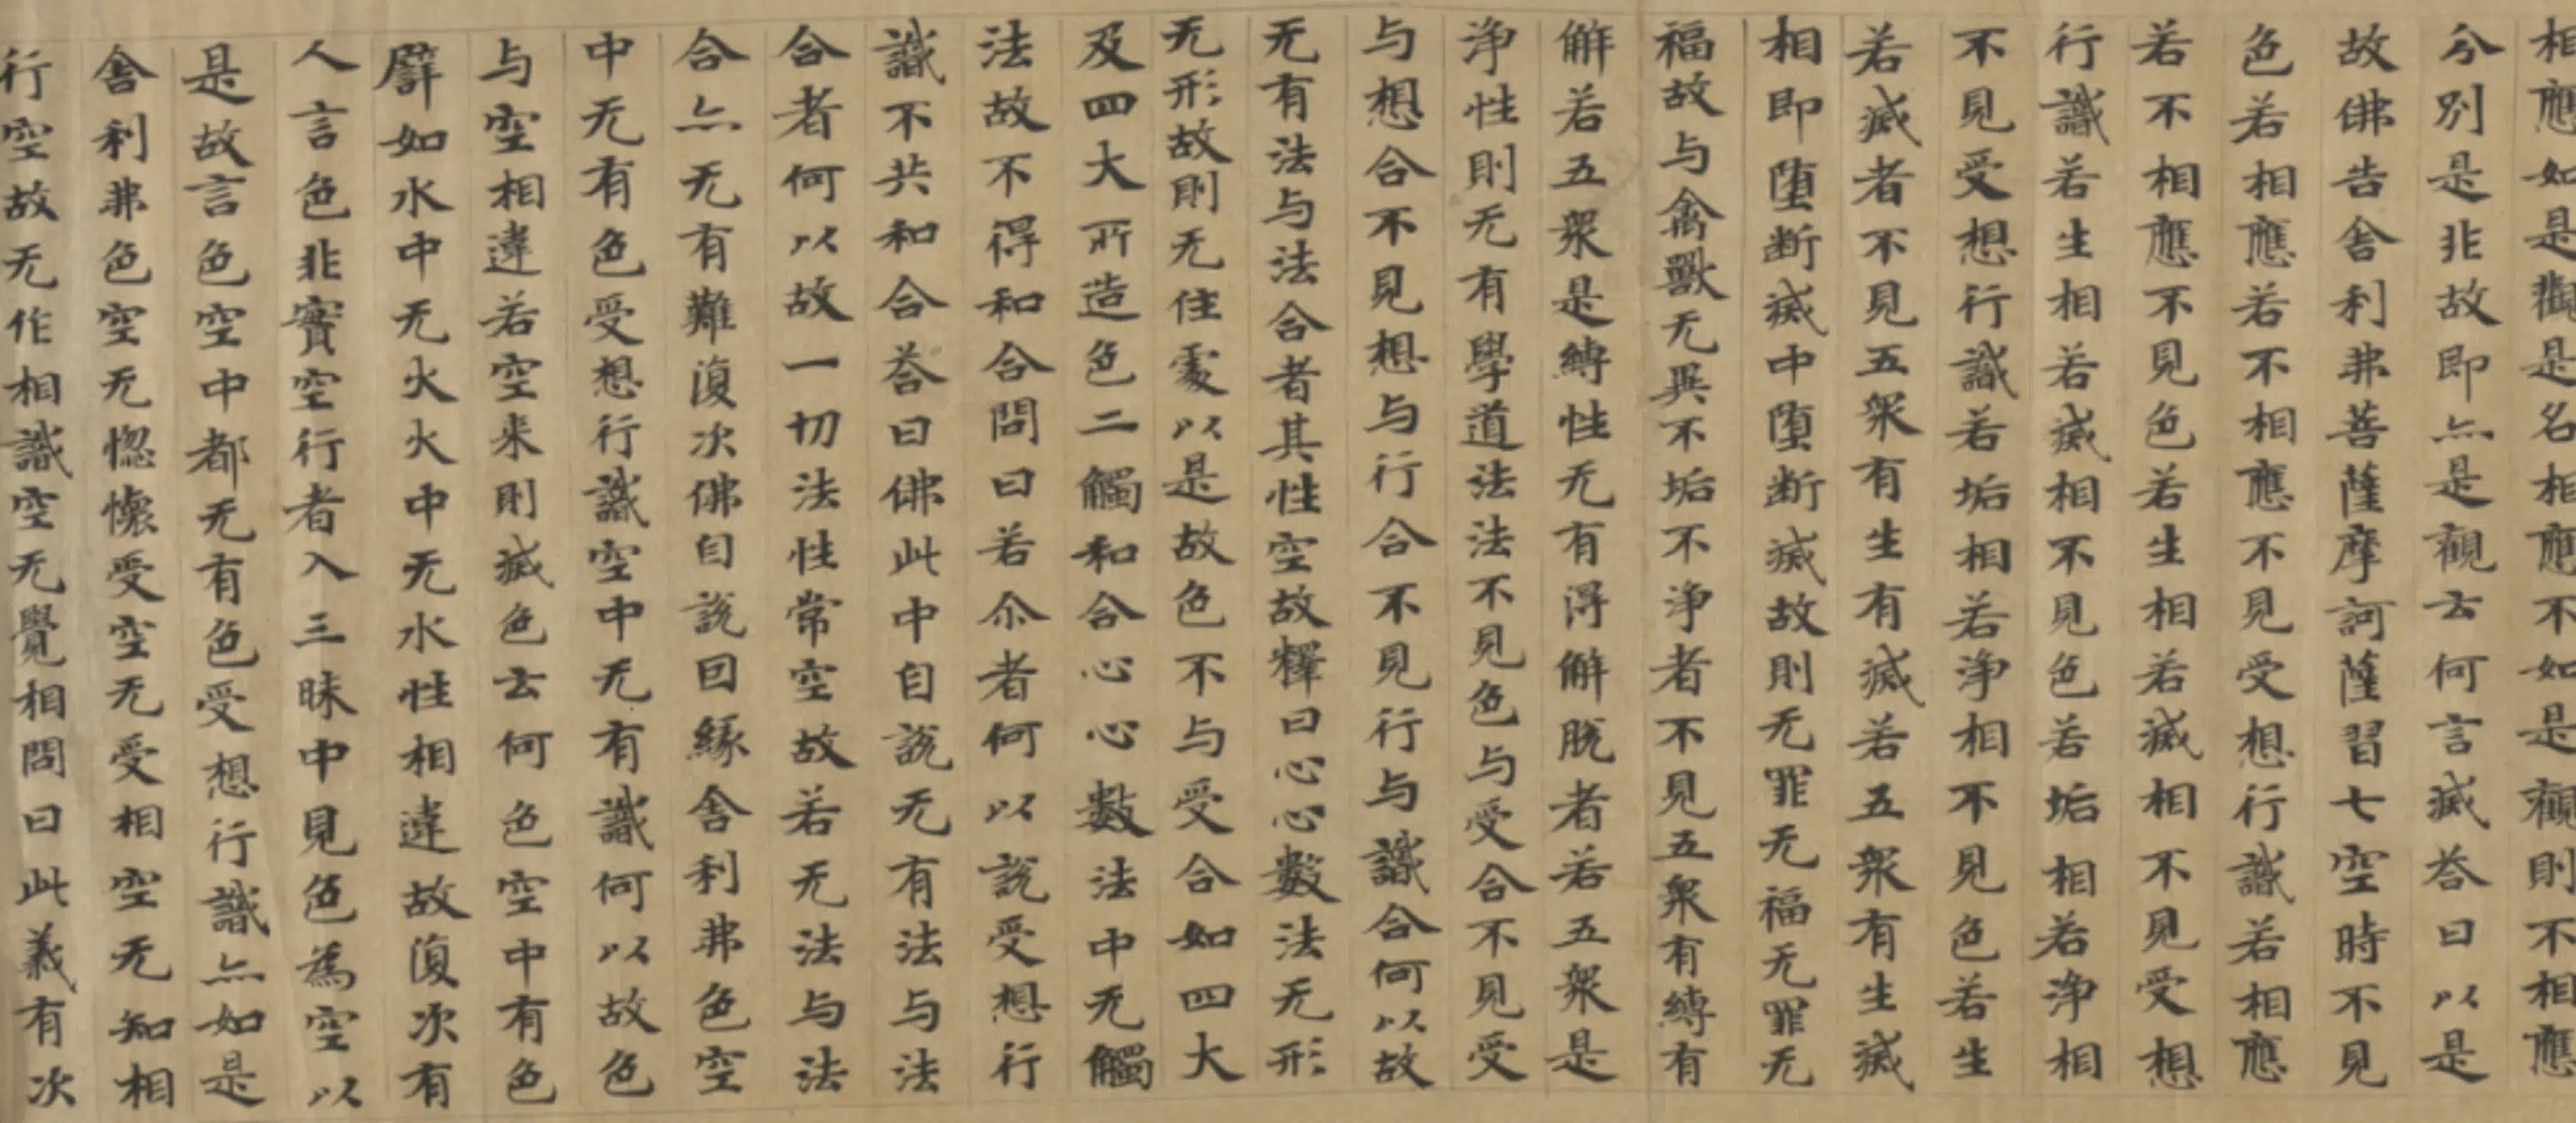 相應如是觀是名相應不如是觀則不相應
分別是非故即亦是觀云何言滅答曰以是
故佛告舍利弗菩薩摩訶薩習七空時不見
色若相應若不相應不見受想行識若相應
若不相應不見色若生相若滅相不見受想
行識若生相若滅相不見色若垢相若淨相
不見受想行識若垢相若淨相不見色若生
若滅者不見五眾有生有滅若五眾有生滅
相即墮断滅中墮断滅故則无罪无福无罪无
福故与禽獸无異不垢不淨者不見五眾有縛有
解若五眾是縛性无有得解脫者若五眾是
淨性則无有學道法法不見色与受合不見受
与想合不見想与行合不見行与識合何以故
无有法与法合者其性空故釋曰心心數法无形
无形故則无住處以是故色不与受合如四大
及四大所造色二觸和合心心數法中无觸
法故不得和合問曰若尒者何以說受想行
識不共和合答曰佛此中自說无有法与法
合者何以故一切法性常空故若无法与法
合亦无有難復次佛自說因緣舍利弗色空
中无有色受想行識空中无有識何以故色
与空相違若空来則滅色云何色空中有色
譬如水中无火火中无水性相違故復次有
人言色非實空行者入三昧中見色為空以
是故言色空中都无有色受想行識亦如是
舍利弗色空无惱懷受空无受相空无知相
行空故无作相識空无覺相問曰此義有次